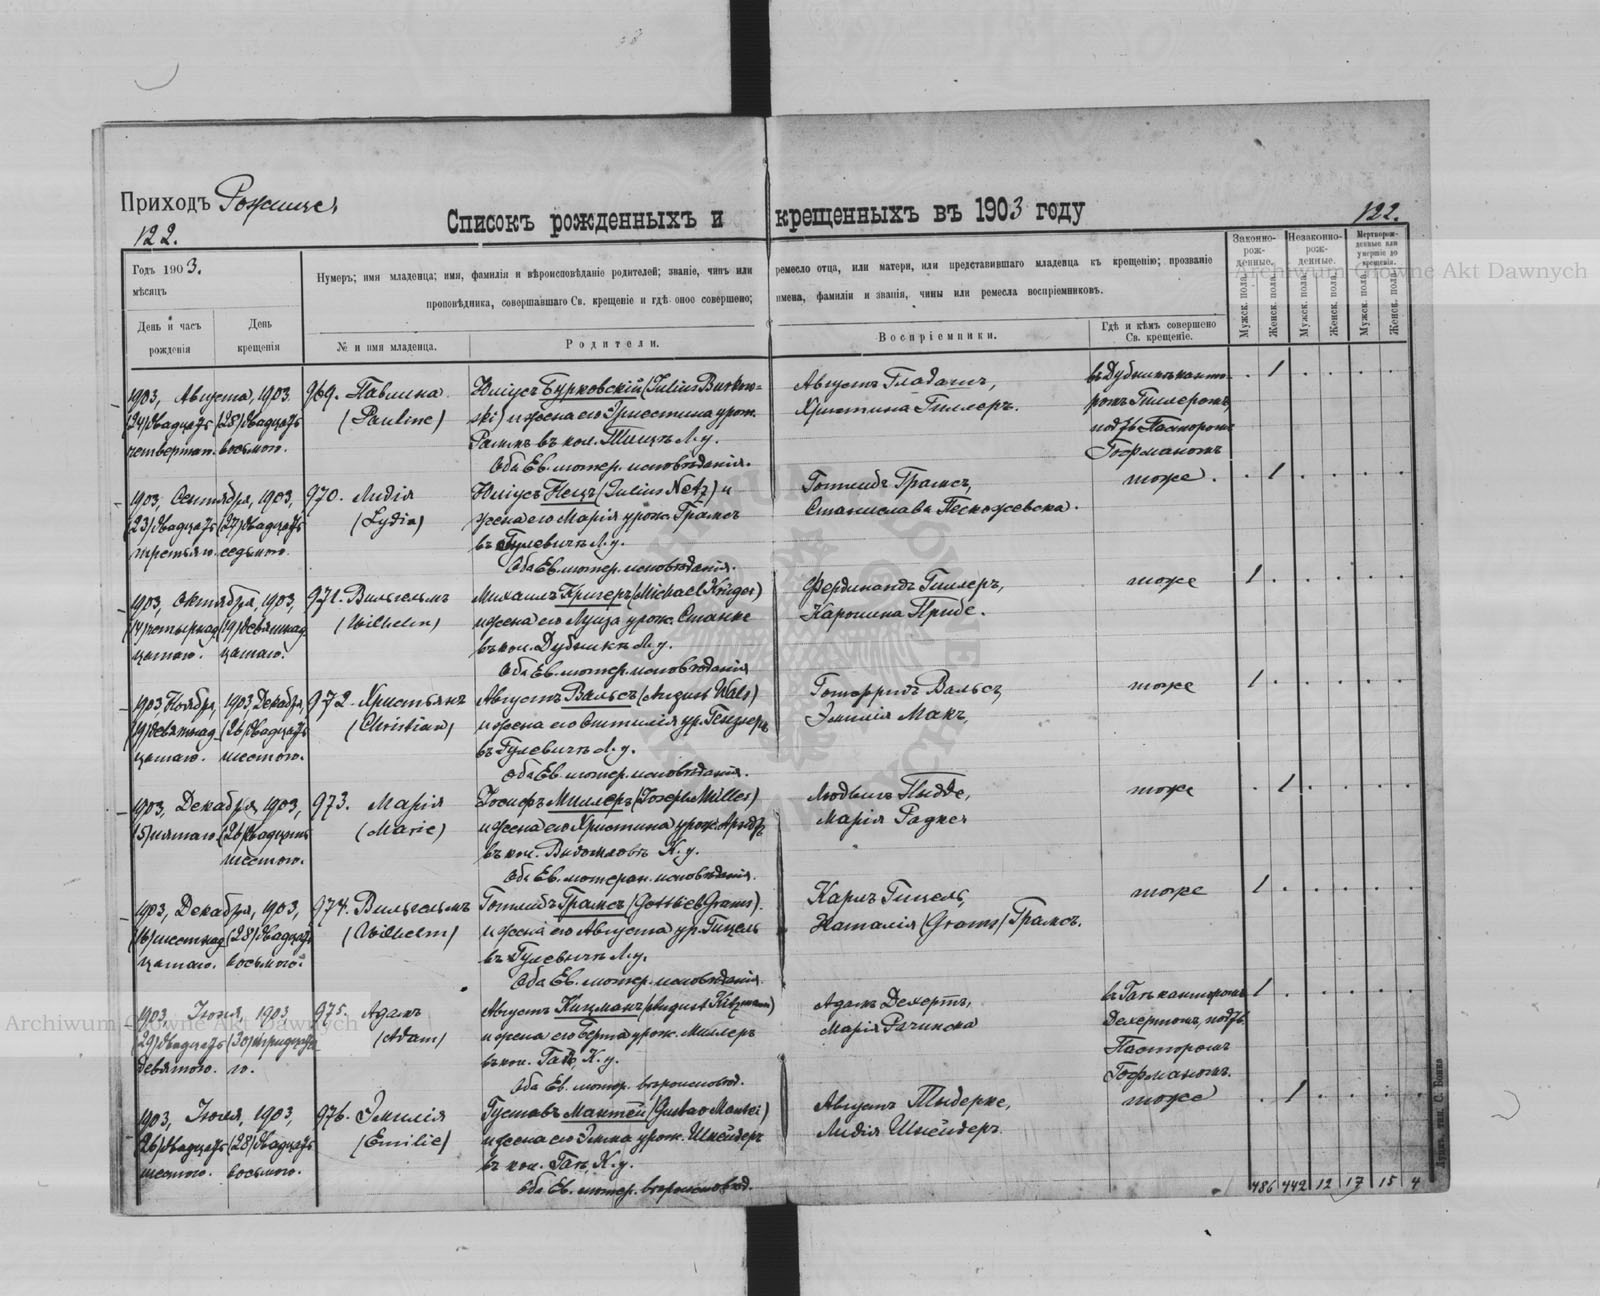 Приходъ Рожище,
122.
Списокъ рожденныхъ и крещенныхъ въ 1903 году
122.
Годъ 1903.
мѣсяцъ
День и часъ рожденія
День крещенія
Нумеръ; имя младенца; имя, фамилія и вѣроисповѣданіе родителей; званіе, чинъ или ремесло отца, или матери, или представившаго младенца къ крещенію; прозваніе
проповѣдника, совершавшаго Св. крещеніе и гдѣ оное совершено; имена, фамиліи и званія, чины или ремесла воспріемниковъ.
№ и имя младенца.
Родители.
Воспріемники.
Гдѣ и кѣмъ совершено Св. крещеніе.
Законно-рож-денные.
Незаконно-рож-денные.
Мертворож-денные или умершіе до крещенія.
Мужск. пола.
Женск. пола.
Мужск. пола.
Женск. пола.
Мужск. пола.
Женск. пола.
1903, Августа, 1903. 969. Павлина Юліусъ Бурковскій (Julius Burkow- Августъ Гладашъ, въ Дубникѣ канто- . 1 . . . .
(24) двадцать (28) двадцать (Pauline) ski) и жена его Эрнестина урож. Христина Гиллеръ. ромъ Гиллеромъ,
четвертаго. восьмого. въ кол. Л. у. подтв. Пасторомъ
Оба Ев. лютер. исповѣданія. Гофманомъ
1903, Сентября, 1903, 970. Лидія Юліусъ Нецъ (Julius Netz) и Готлибъ Грамсъ, тоже. . 1 . . . .
(23) двадцать (27) двадцать (Lydia) жена его Марія урож. Грамсъ Станислава Пескожевска.
третьяго. седьмого. въ Гулевичѣ Л. у.
Оба Ев. лютер. исповѣданія.
1903, Октября, 1903, 971. Вильгельмъ Михаилъ Кригеръ (Michael Krüger) Фердинандъ Гиллеръ, тоже 1 . . . . .
(14) четырнад- (19) девятнад- (Wilhelm) и жена его Луиза урож. Станке Каролина Приде.
цатаго. цатаго. въ кол. Дубникѣ Л. у.
Оба Ев. лютер. исповѣданія
1903 Ноября, 1903, Декабря, 972. Христьянъ Августъ Вальсъ (August Wals) Готфридъ Вальсъ, тоже 1 . . . . .
(19) девятнад- (26) двадцать (Christian) и жена его Оттилія ур. Генслеръ Эмилія Макъ,
цатаго. шестого. въ Гулевичѣ Л. у.
Оба Ев. лютер. исповѣданія.
1903, Декабря, 1903, 973. Марія Іосифъ Миллеръ (Joseph Miller) Людвигъ Тыдде, тоже . 1 . . . .
(5) пятаго (26) двадцать (Marie) и жена его Христина урож. Арндтъ Марія Радке.
шестого. въ кол. К. у.
Оба Ев. лютеран. исповѣданія.
1903, Декабря, 1903, 974. Вильгельмъ Готлибъ Грамсъ (Gottlieb Grams). Карлъ Гицель, тоже 1 . . . . .
(16) шестнад- (28) двадцать (Wilhelm) и жена его Августа ур. Гицель Наталія (Grams) Грамсъ.
цатаго. восьмого. въ Гулевичѣ Л. у.
Оба Ев. лютер. исповѣданія
1903, Іюня, 1903, 975. Адамъ Августъ Кицманъ (August Kitzmann) Адамъ Дехертъ, въ Гать канторомъ 1 . . . . .
(29) двадцать (30) тридцата- (Adam) и жена его Берта урож. Миллеръ Марія Рачинска Дехертомъ, подтв.
девятого. го. въ кол. Гать, К. у. Пасторомъ
Оба Ев. лютер. вѣроисповѣд. Гофманомъ.
1903, Іюля, 1903, 976. Эмилія Густавъ Мантей (Gustav Mantei) Августъ Тыдерке, тоже . 1 . . . .
(26) двадцать (28) двадцать (Emilie) и жена его Эмма урож. Шнейдеръ Лидія Шнейдеръ.
шестого. восьмого. въ кол. Гать, К. у.
Оба Ев. лютер. вѣроисповѣд.
486 442 12 17 15 4
Archiwum Główne Akt Dawnych
Archiwum Główne Akt Dawnych